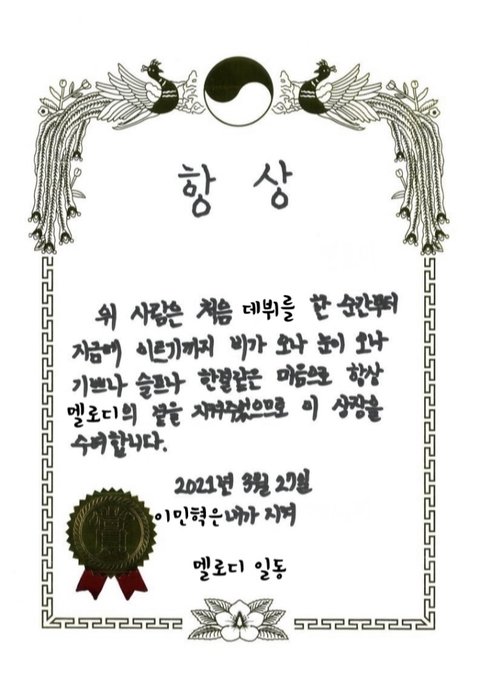 항 상
위 사람은 처음 데뷔를 한 순간부터
지금에 이르기까지 비가 오나 눈이 오나
기쁘나 슬프나 한결같은 마음으로 항상
멜로디의 곁을 지켜주었으므로 이 상장을
수여합니다.
2021년 3월 27일
이민혁은내가 지켜
멜로디 일동
賞